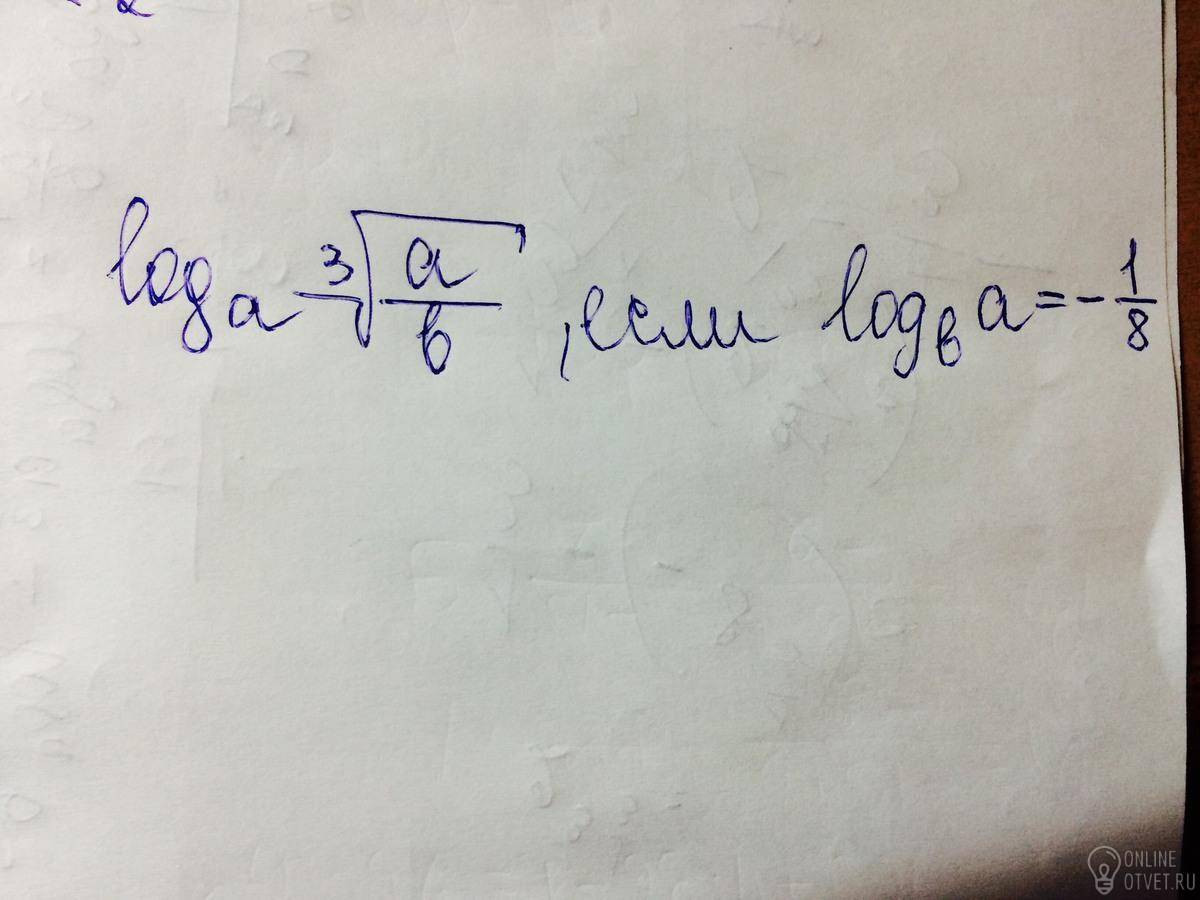 logₐ ∛(a/b), если log_b a = -1/8
ONLINE
OTVET.RU